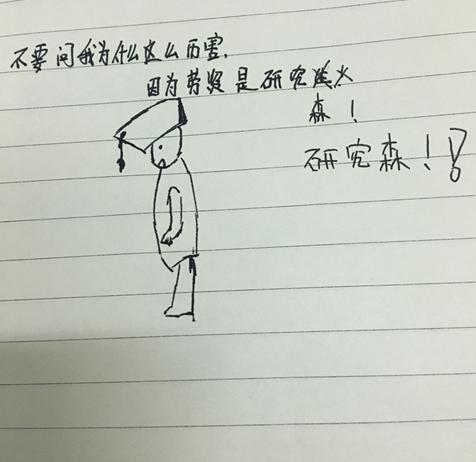 不要问我为什么这么厉害,
因为劳资是研究
森！
研究森！！